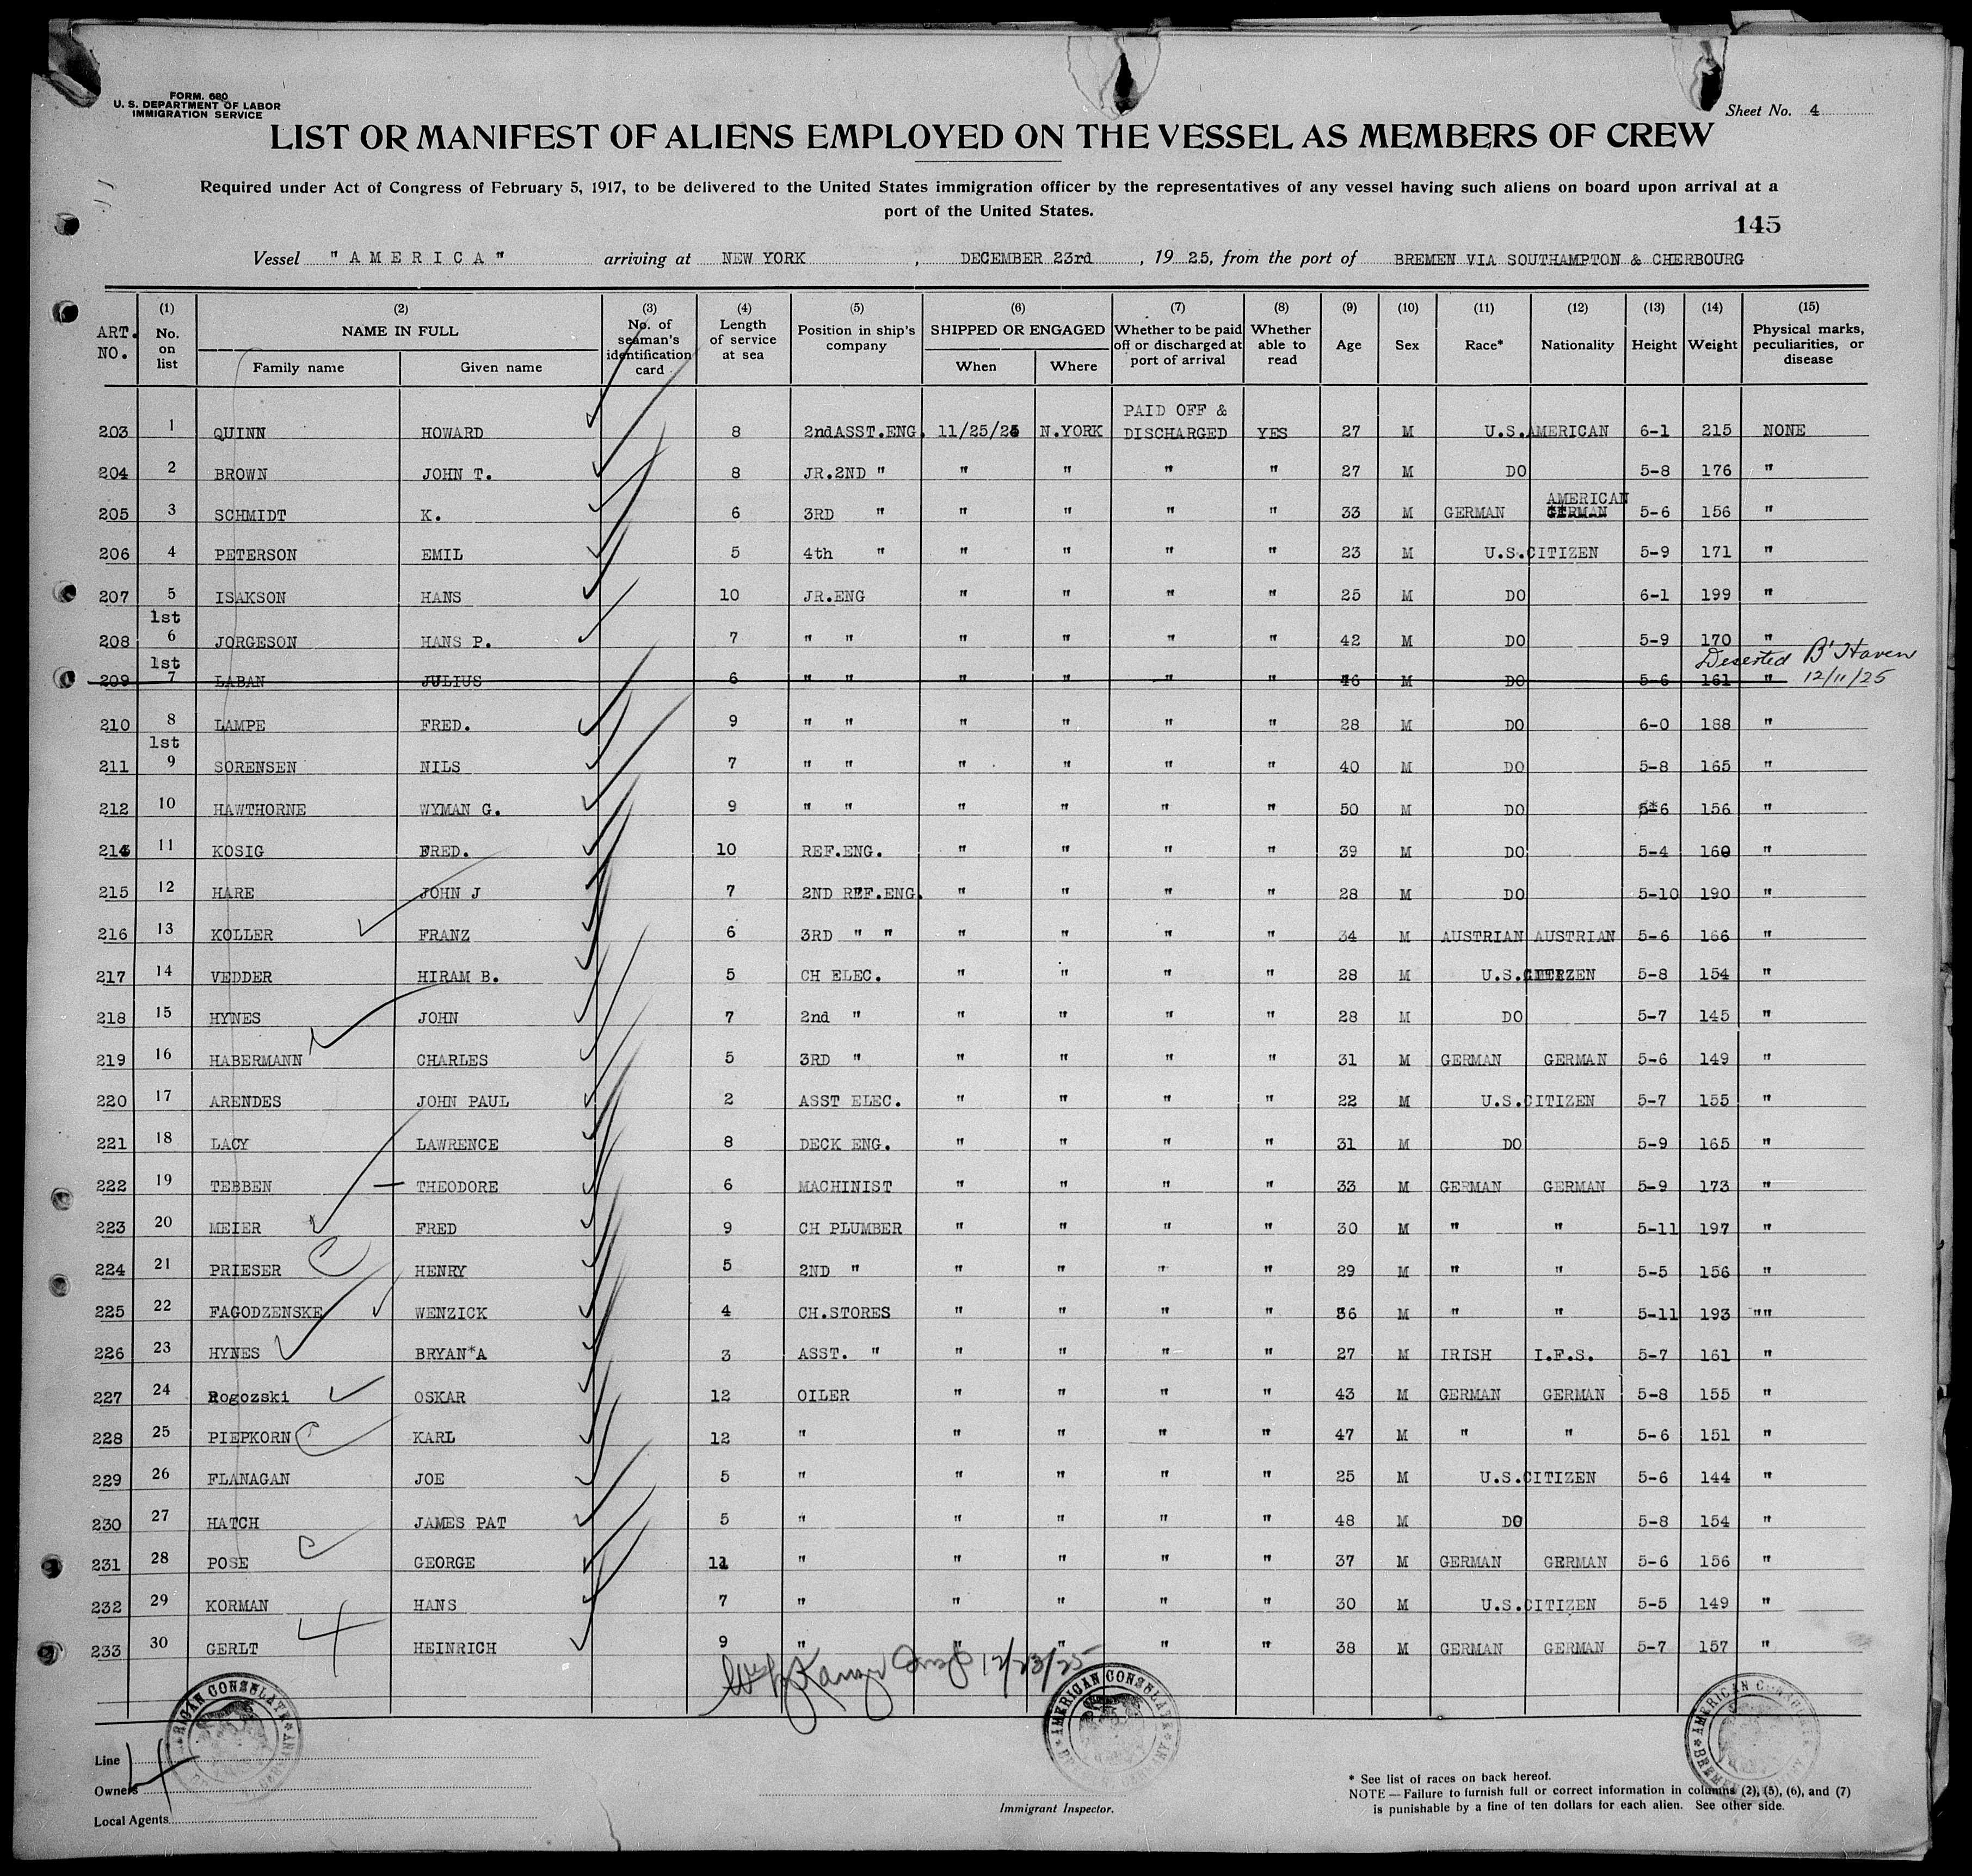 FORM. 680
U. S. DEPARTMENT OF LABOR
IMMIGRATION SERVICE
Sheet No. 4
LIST OR MANIFEST OF ALIENS EMPLOYED ON THE VESSEL AS MEMBERS OF CREW
Required under Act of Congress of February 5, 1917, to be delivered to the United States immigration officer by the representatives of any vessel having such aliens on board upon arrival at a
port of the United States.
145
Vessel "AMERICA" arriving at NEW YORK, DECEMBER 23rd, 19 25, from the port of BREMEN VIA SOUTHAMPTON & CHERBOURG
ART. NO. (1) No. on list (2) NAME IN FULL Family name Given name (3) No. of seaman's identification card (4) Length of service at sea (5) Position in ship's company (6) SHIPPED OR ENGAGED When Where (7) Whether to be paid off or discharged at port of arrival (8) Whether able to read (9) Age (10) Sex (11) Race* (12) Nationality (13) Height (14) Weight (15) Physical marks, peculiarities, or disease
203 1 QUINN HOWARD 8 2ndASST.ENG. 11/25/25 N.YORK PAID OFF & DISCHARGED YES 27 M U.S.AMERICAN 6-1 215 NONE
204 2 BROWN JOHN T. 8 JR.2ND " " " " " 27 M DO 5-8 176 "
205 3 SCHMIDT K. 6 3RD " " " " " 33 M GERMAN AMERICAN GERMAN 5-6 156 "
206 4 PETERSON EMIL 5 4th " " " " " 23 M U.S.CITIZEN 5-9 171 "
207 5 ISAKSON HANS 10 JR.ENG " " " " 25 M DO 6-1 199 "
208 1st 6 JORGESON HANS P. 7 " " " " " " 42 M DO 5-9 170 "
209 1st 7 LABAN JULIUS 6 " " " " " " 46 M DO 5-6 161 " Deserted B'Haven 12/11/25
210 8 LAMPE FRED. 9 " " " " " " 28 M DO 6-0 188 "
211 1st 9 SORENSEN NILS 7 " " " " " " 40 M DO 5-8 165 "
212 10 HAWTHORNE WYMAN G. 9 " " " " " " 50 M DO 5-6 156 "
214 11 KOSIG FRED. 10 REF.ENG. " " " " 39 M DO 5-4 160 "
215 12 HARE JOHN J 7 2ND REF.ENG. " " " " 28 M DO 5-10 190 "
216 13 KOLLER FRANZ 6 3RD " " " " " " 34 M AUSTRIAN AUSTRIAN 5-6 166 "
217 14 VEDDER HIRAM B. 5 CH ELEC. " " " " 28 M U.S.CITIZEN 5-8 154 "
218 15 HYNES JOHN 7 2nd " " " " " 28 M DO 5-7 145 "
219 16 HABERMANN CHARLES 5 3RD " " " " " 31 M GERMAN GERMAN 5-6 149 "
220 17 ARENDES JOHN PAUL 2 ASST ELEC. " " " " 22 M U.S.CITIZEN 5-7 155 "
221 18 LACY LAWRENCE 8 DECK ENG. " " " " 31 M DO 5-9 165 "
222 19 TEBBEN THEODORE 6 MACHINIST " " " " 33 M GERMAN GERMAN 5-9 173 "
223 20 MEIER FRED 9 CH PLUMBER " " " " 30 M " " 5-11 197 "
224 21 PRIESER HENRY 5 2ND " " " " " 29 M " " 5-5 156 "
225 22 FAGODZENSKE WENZICK 4 CH.STORES " " " " 36 M " " 5-11 193 ""
226 23 HYNES BRYAN*A 3 ASST. " " " " " 27 M IRISH I.F.S. 5-7 161 "
227 24 Rogozski OSKAR 12 OILER " " " " 43 M GERMAN GERMAN 5-8 155 "
228 25 PIEPKORN KARL 12 " " " " " 47 M " " 5-6 151 "
229 26 FLANAGAN JOE 5 " " " " " 25 M U.S.CITIZEN 5-6 144 "
230 27 HATCH JAMES PAT 5 " " " " " 48 M DO 5-8 154 "
231 28 POSE GEORGE 11 " " " " " 37 M GERMAN GERMAN 5-6 156 "
232 29 KORMAN HANS 7 " " " " " 30 M U.S.CITIZEN 5-5 149 "
233 30 GERLT HEINRICH 9 " " " " " 38 M GERMAN GERMAN 5-7 157 "
12/23/25
AMERICAN CONSULATE
AMERICAN CONSULATE
AMERICAN CONSULATE BREMEN
Line
Owners
Local Agents
Immigrant Inspector.
* See list of races on back hereof.
NOTE — Failure to furnish full or correct information in columns (2), (5), (6), and (7)
is punishable by a fine of ten dollars for each alien. See other side.